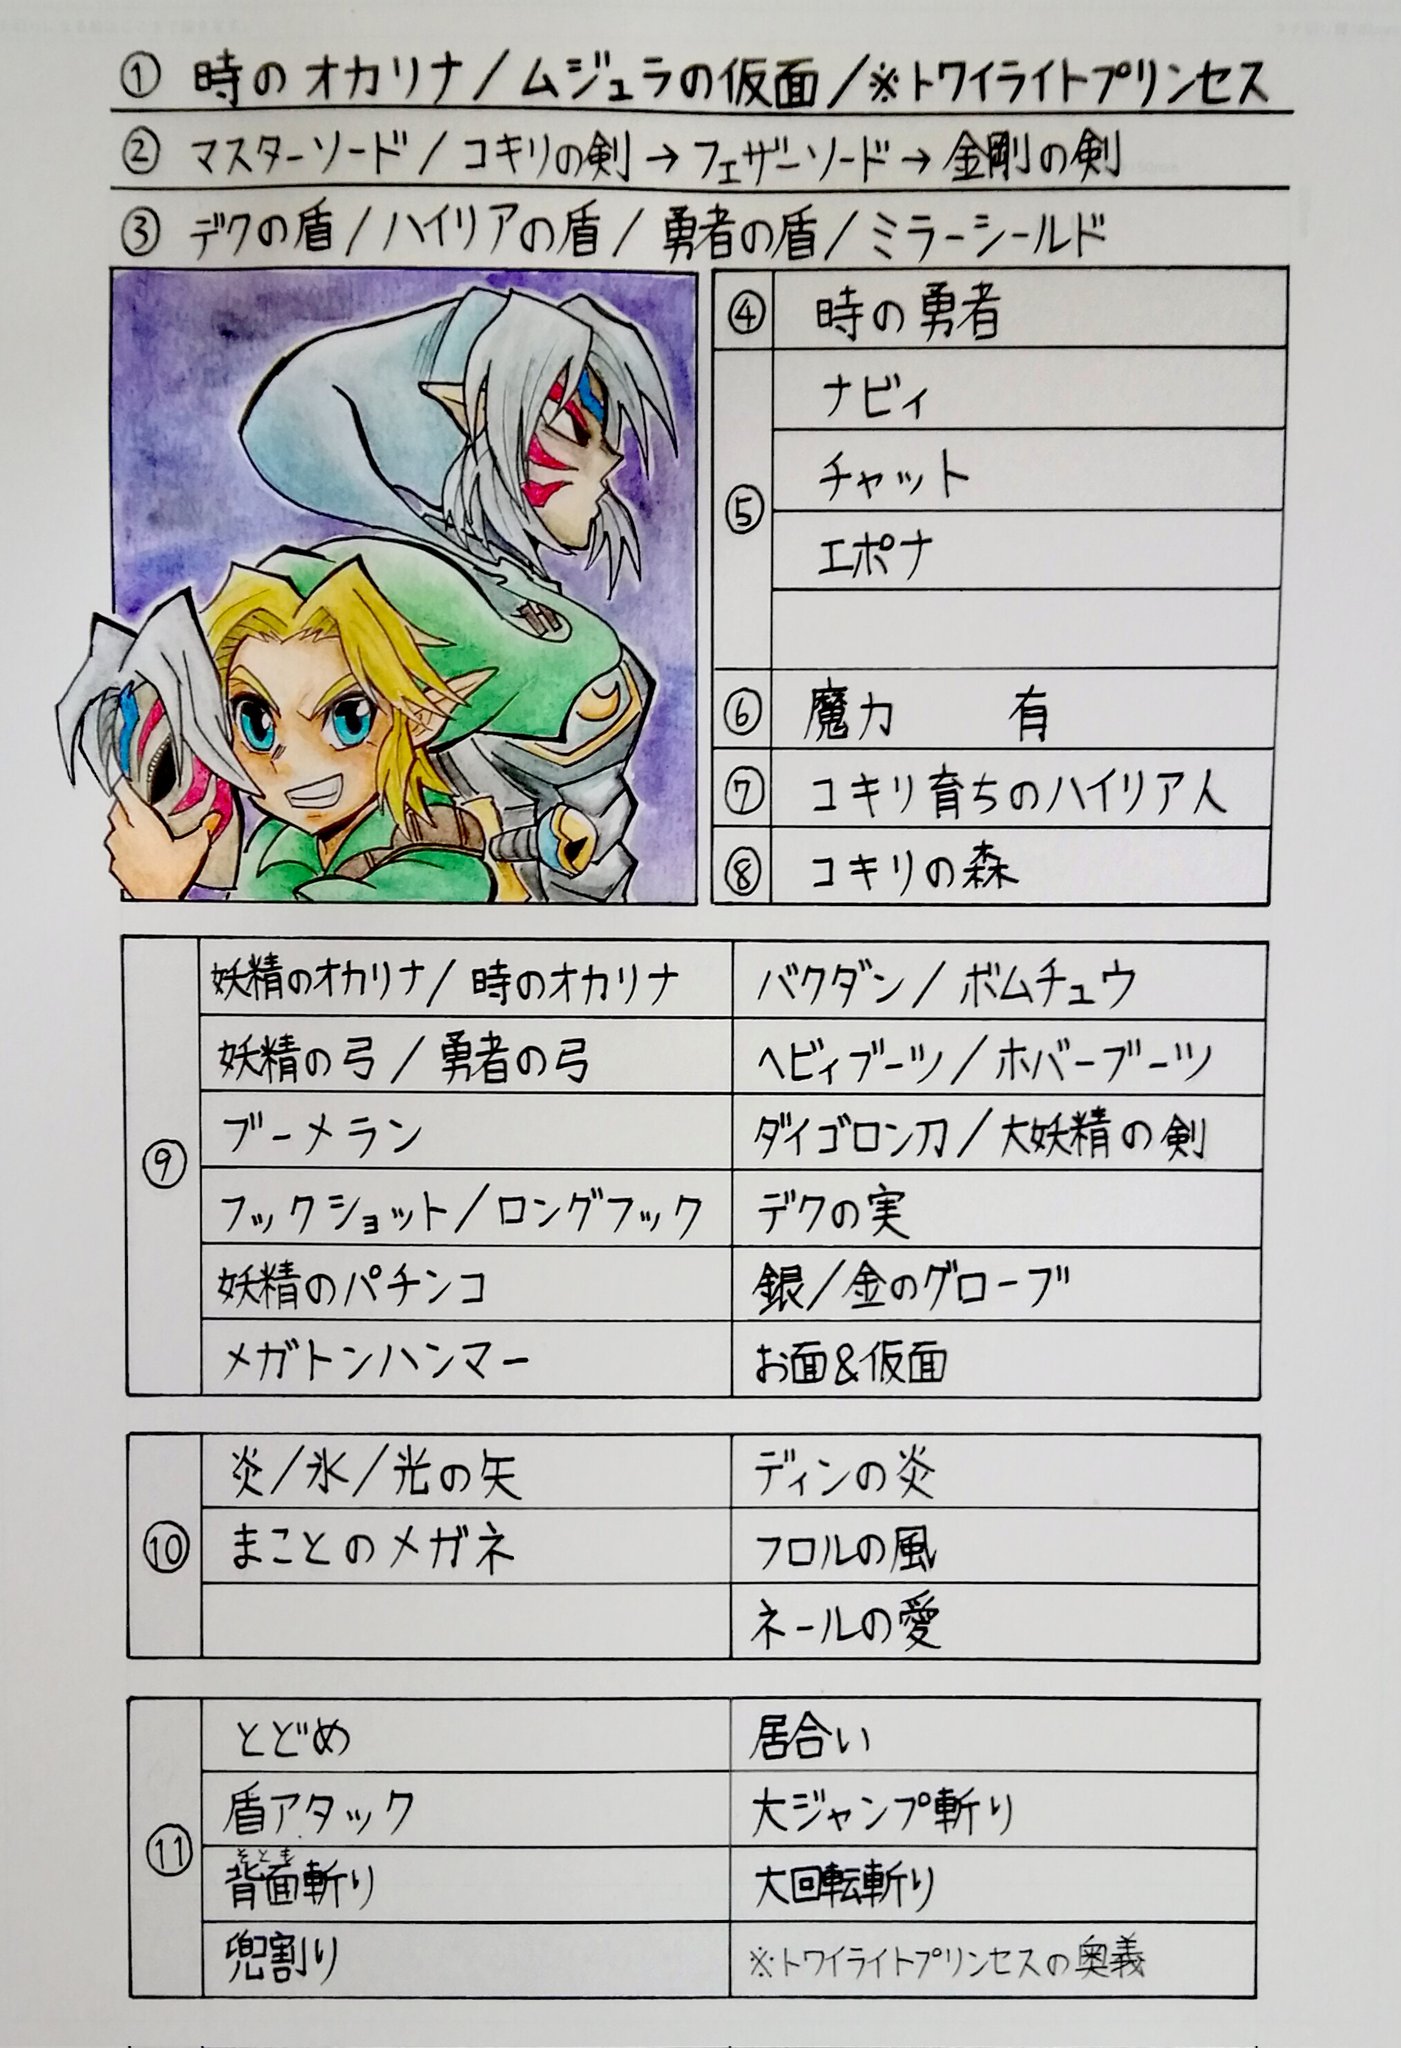 ① 時のオカリナ/ムジュラの仮面/※トワイライトプリンセス
② マスターソード/コキリの剣→フェザーソード→金剛の剣
③ デクの盾/ハイリアの盾/勇者の盾/ミラーシールド
④ 時の勇者
⑤ ナビィ
チャット
エポナ
⑥ 魔力 有
⑦ コキリ育ちのハイリア人
⑧ コキリの森
⑨ 妖精のオカリナ/時のオカリナ バクダン/ボムチュウ
妖精の弓/勇者の弓 ヘビィブーツ/ホバーブーツ
ブーメラン ダイゴロン刀/大妖精の剣
フックショット/ロングフック デクの実
妖精のパチンコ 銀/金のグローブ
メガトンハンマー お面&仮面
⑩ 炎/氷/光の矢 ディンの炎
まことのメガネ フロルの風
ネールの愛
⑪ とどめ 居合い
盾アタック 大ジャンプ斬り
そとも
背面斬り 大回転斬り
兜割り ※トワイライトプリンセスの奥義